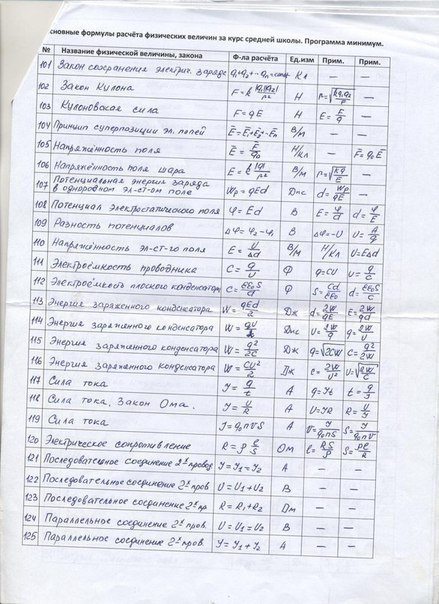 сновные формулы расчёта физических величин за курс средней школы. Программа минимум.
№ Название физической величины, закона Ф-ла расчёта Ед.изм Прим. Прим.
101 Закон сохранения электрич. заряда q₁+q₂+...qₙ=const Кл — —
102 Закон Кулона F=k|q₁||q₂|/r² Н r=√(kq₁q₂/F) —
103 Кулоновская сила F=qE Н E=F/q —
104 Принцип суперпозиции эл. полей E̅=E̅₁+E̅₂+..E̅ₙ В/м — —
105 Напряжённость поля E̅=F̅/q₀ Н/Кл — F̅=q₀E̅
106 Напряжённость поля шара E=k|q|/r² В/м r=√(kq/E) —
107 Потенциальная энергия заряда в однородном эл-ст-ом поле Wp=qEd Дж d=Wp/qE —
108 Потенциал электростатического поля φ=Ed В E=φ/d d=φ/E
109 Разность потенциалов Δφ=φ₂-φ₁ В Δφ=-U U=A/q
110 Напряжённость эл-ст-го поля E=U/Δd В/м Н/Кл U=EΔd
111 Электроёмкость проводника C=q/U Ф q=CU U=q/C
112 Электроёмкость плоского конденсатора C=εε₀S/d Ф S=Cd/εε₀ d=εε₀S/C
113 Энергия заряженного конденсатора W=qEd/2 Дж d=2W/qE E=2W/qd
114 Энергия заряженного конденсатора W=qU/2 Дж U=2W/q q=2W/U
115 Энергия заряженного конденсатора W=q²/2C Дж q=√2CW C=q²/2W
116 Энергия заряженного конденсатора W=CU²/2 Дж C=2W/U² U=√(2W/C)
117 Сила тока I=q/t А q=It t=q/I
118 Сила тока. Закон Ома. I=U/R А U=IR R=U/I
119 Сила тока I=q₀nVS А V=I/q₀nS S=I/q₀nV
120 Электрическое сопротивление R=ρℓ/S Ом ℓ=RS/ρ S=ρℓ/R
121 Последовательное соединение 2ˣ провод I=I₁=I₂ А — —
122 Последовательное соединение 2ˣ пров U=U₁+U₂ В — —
123 Последовательное соединение 2ˣ пр R=R₁+R₂ Ом — —
124 Параллельное соединение 2ˣ пров. U=U₁=U₂ В — —
125 Параллельное соединение 2ˣ пров. I=I₁+I₂ А — —